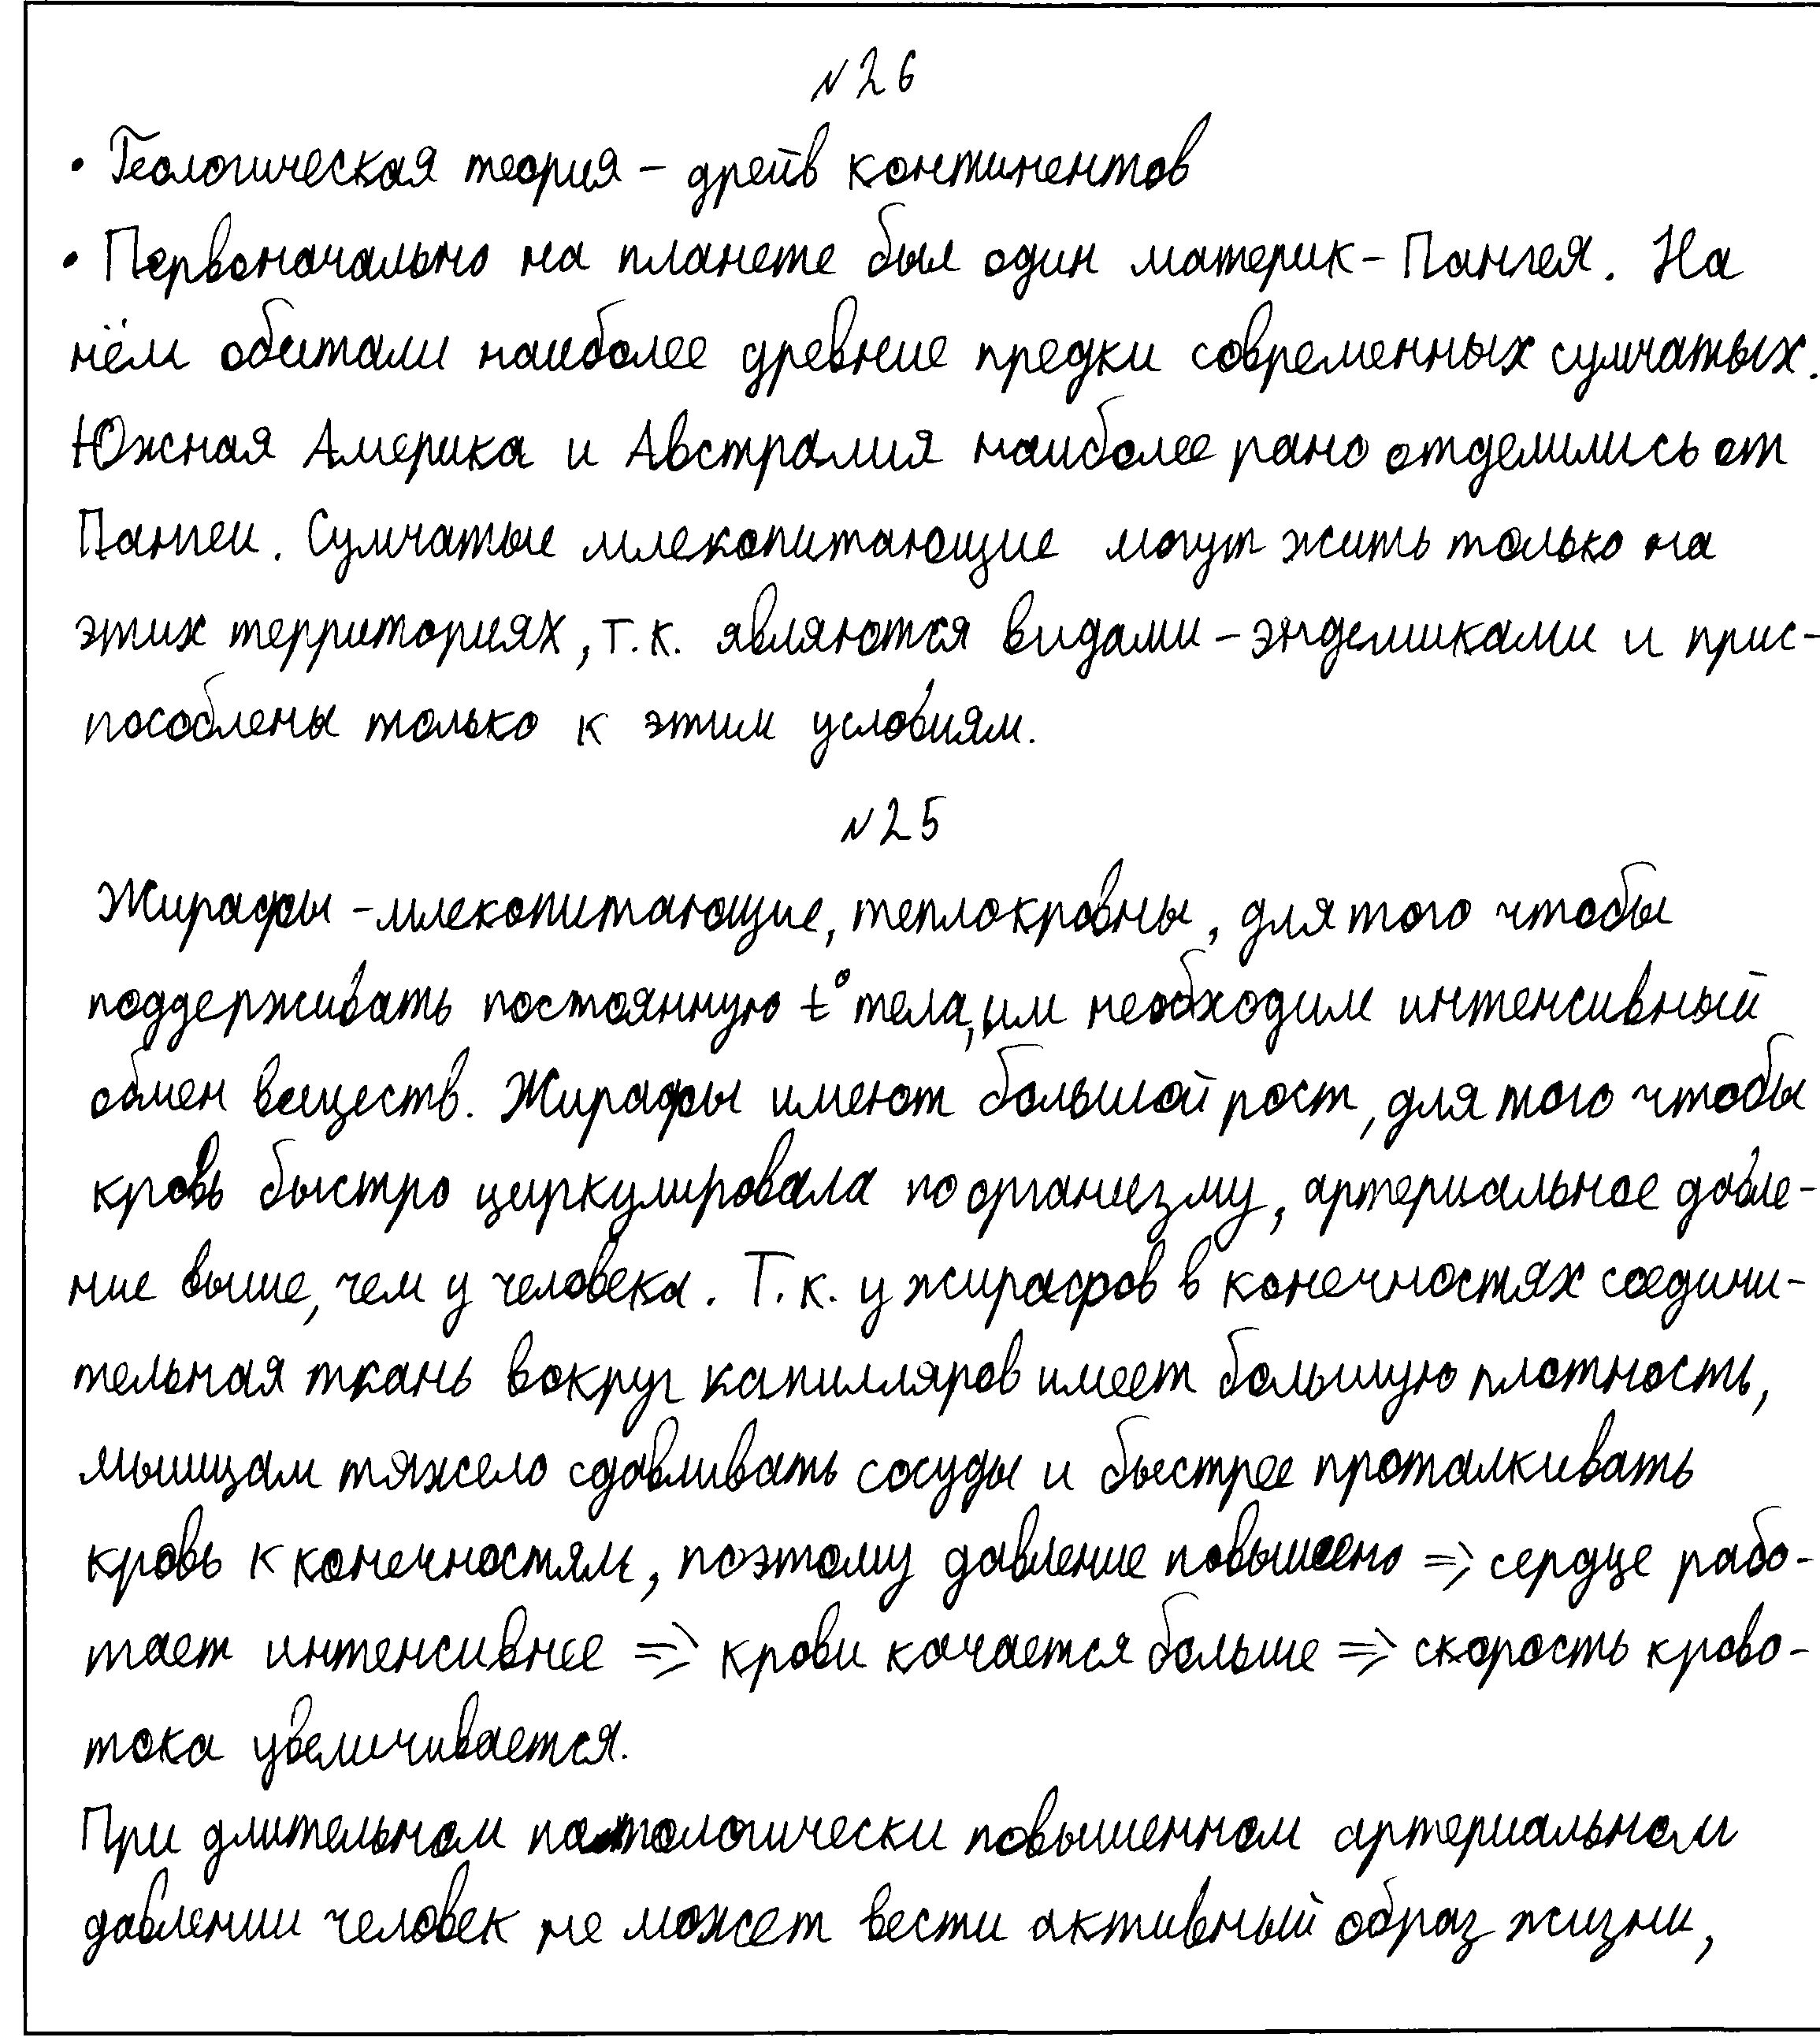 №26
• Геологическая теория – дрейв континентов
• Первоначально на планете был один материк – Пангея. На
нём обитали наиболее древние предки современных сумчатых.
Южная Америка и Австралия наиболее рано отделились от
Пангеи. Сумчатые млекопитающие могут жить только на
этих территориях, т.к. являются видами – эндемиками и прис-
пособлены только к этим условиям.
№25
Жирафы – млекопитающие, теплокровны, для того чтобы
поддерживать постоянную t° тела, им необходим интенсивный
обмен веществ. Жирафы имеют большой рост, для того чтобы
кровь быстро циркулировала по организму, артериальное давле-
ние выше, чем у человека. Т.к. у жирафов в конечностях соедини-
тельная ткань вокруг капилляров имеет большую плотность,
мышцам тяжело сдавливать сосуды и быстрее проталкивать
кровь к конечностям, поэтому давление повышено => сердце рабо-
тает интенсивнее => крови качается больше => скорость крово-
тока увеличивается.
При длительном патологически повышенном артериальном
давлении человек не может вести активный образ жизни,